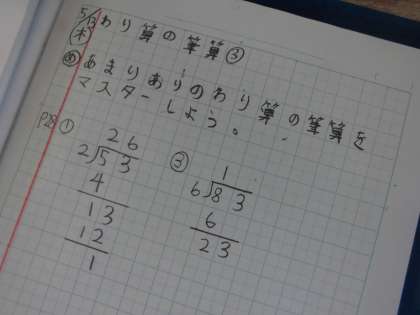 5/13 わり算の筆算③
(木)
め あまりありのわり算の筆算を
マスターしよう。
P28 ① ③
26 1
2)53 6)83
4 6
13 23
12
1